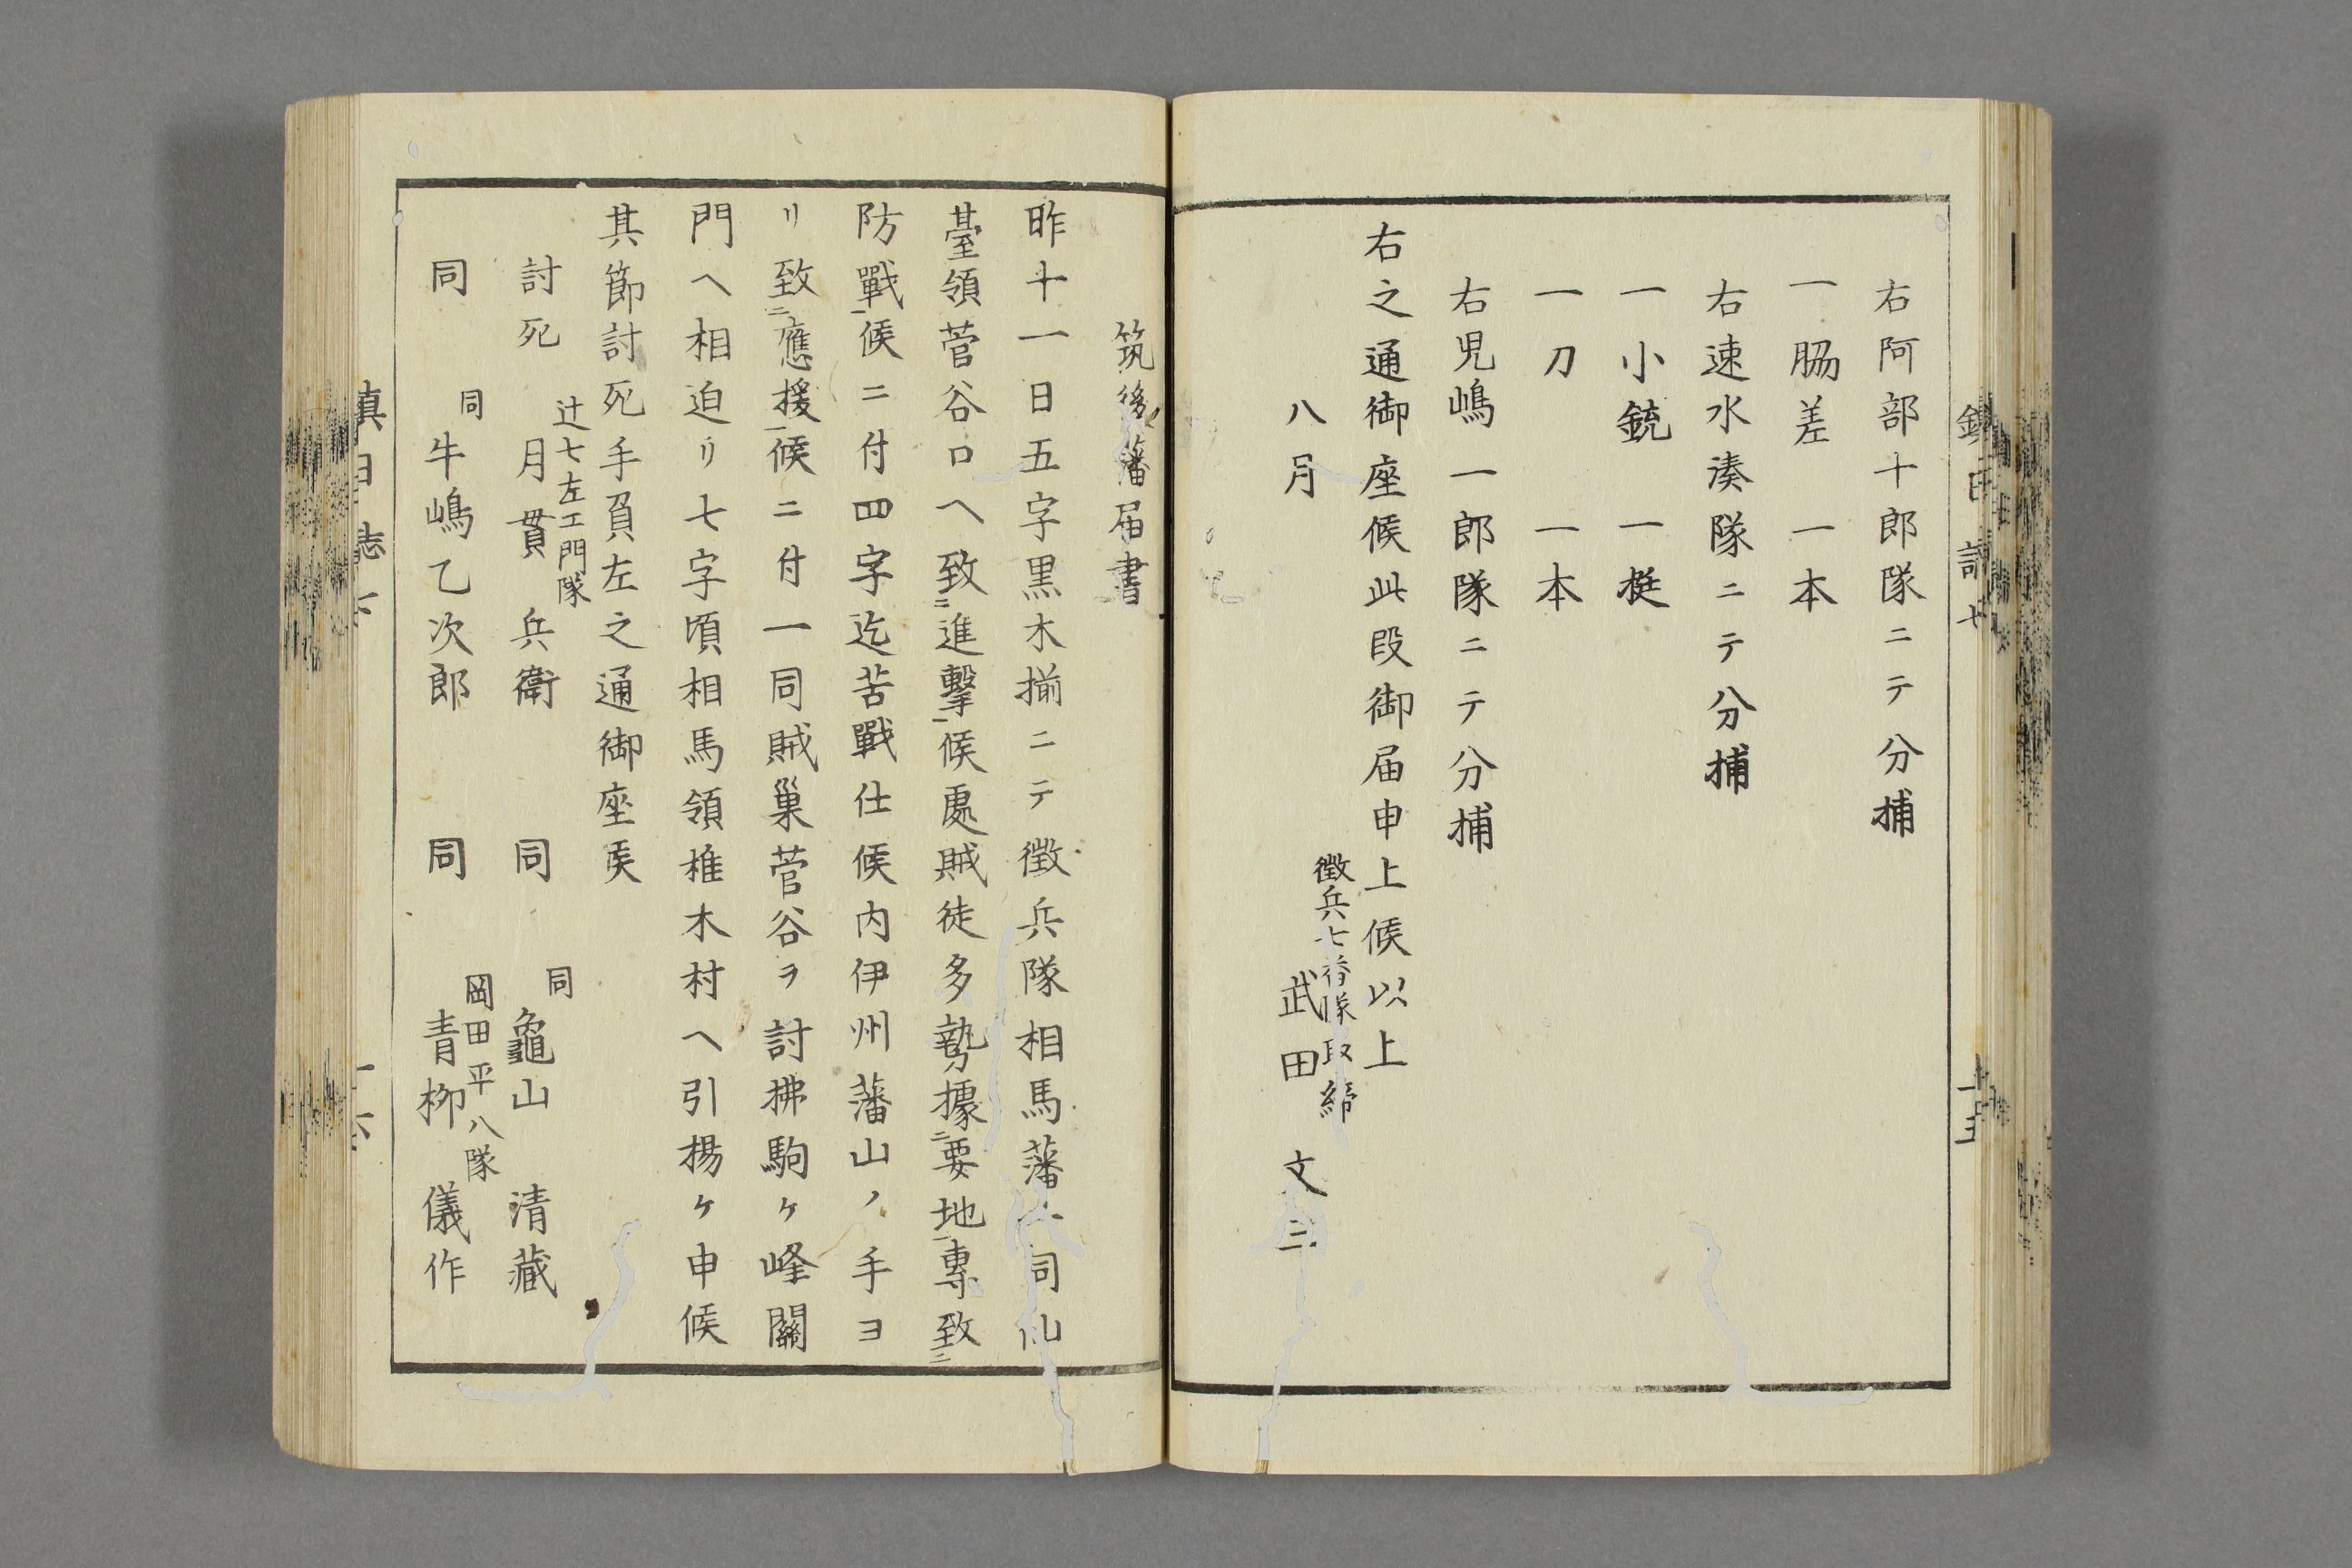 右阿部十郎隊ニテ分捕
一脇差　一本
右速水湊隊ニテ分捕
一小銃　一挺
一刀　一本
右児嶋一郎隊ニテ分捕
右之通御座候此段御届申上候以上
徴兵七番隊取締
八月　武田文三
筑後藩届書
昨十一日五字黒木揃ニテ徴兵隊相馬藩一同仙
臺領菅谷口ヘ致二進擊一候處賊徒多勢據二要地一專致二
防戰一候ニ付四字迄苦戰仕候内伊州藩山ノ手ヨ
リ致二應援一候ニ付一同賊巢菅谷ヲ討拂駒ケ峰關
門ヘ相迫リ七字頃相馬領椎木村ヘ引揚ケ申候
其節討死手負左之通御座候
辻七左エ門隊　同
討死　月貫兵衛　同　龜山清藏
同　岡田平八隊
同　牛嶋乙次郎　同　青柳儀作